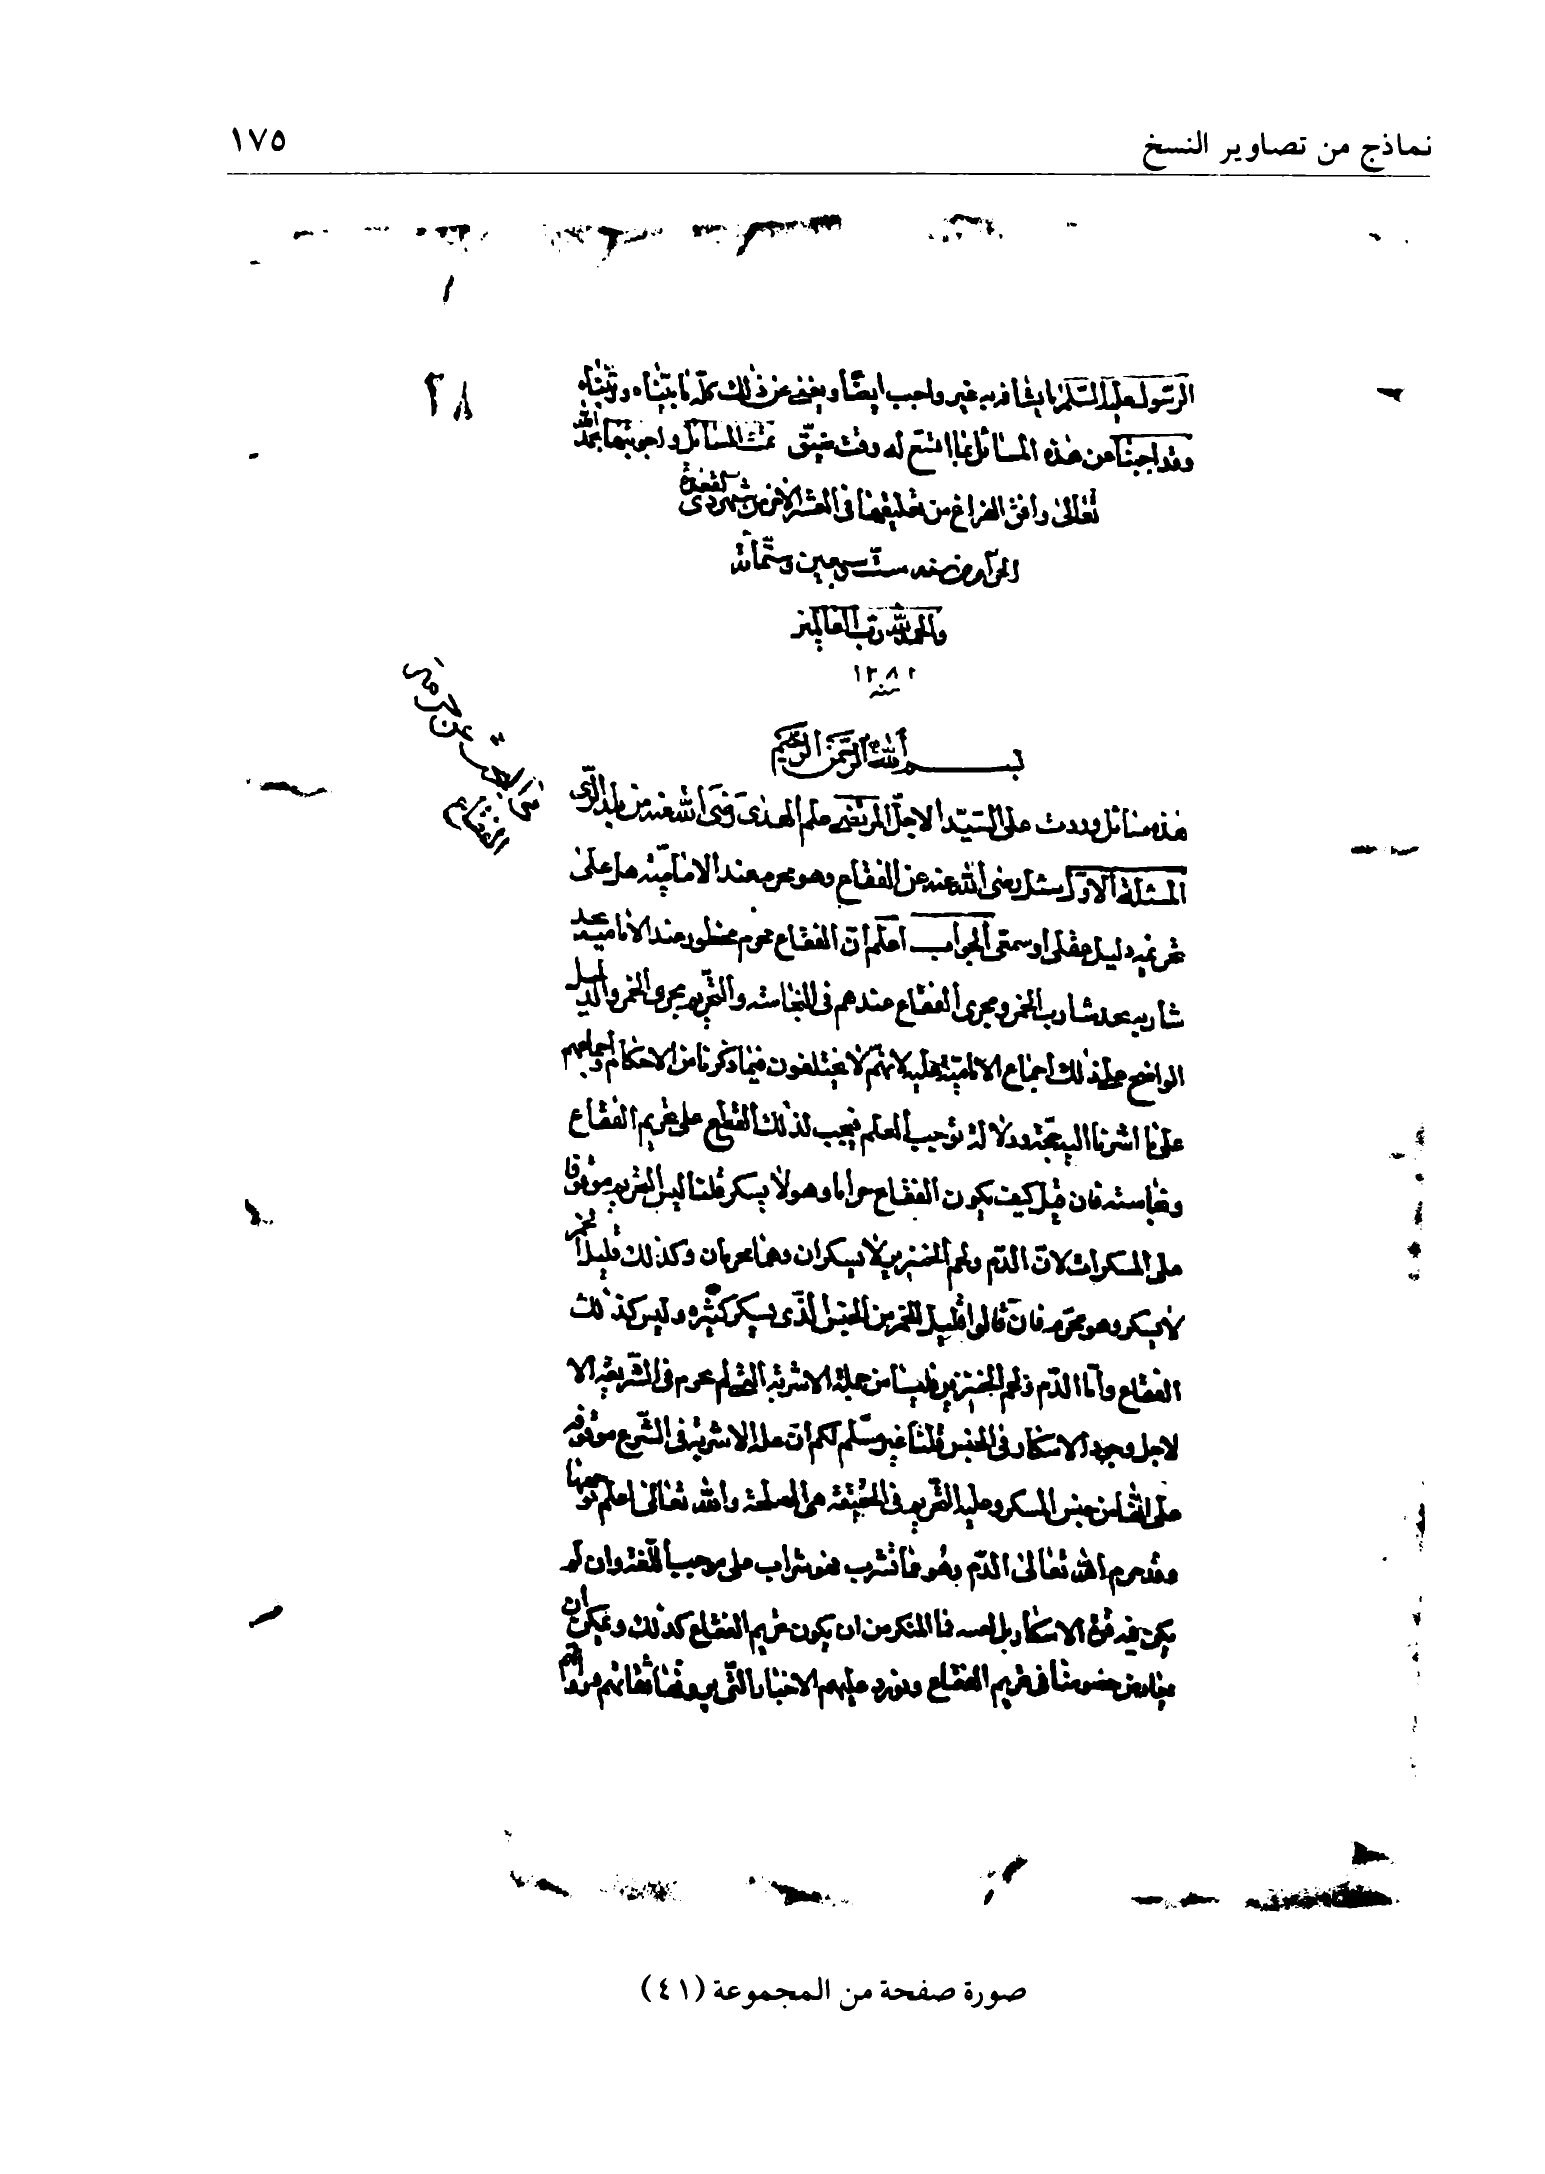 نماذج من تصاوير النسخ
١٧٥
٢٨
الرسول عليه السلم ما يشافه به غير واجب ايضا ويغنى عن ذلك كله ما بيناه ورتبناه
وقد اجبنا عن هذه المسائل بما اتسع له وقت ضيق تمت المسائل واجوبتها بحمد الله
تعالى وافق الفراغ من تعليقها فى العشر الاخر من شهر ذى القعدة
الحرام من سنه ست وسبعين وستمائة
والحمد لله رب العالمين
١٢٨٢
سنه
فى البحث عن حرمة
الفقاع
بسم الله الرحمن الرحيم
هذه مسائل وردت على السيد الاجل المرتضى علم الهدى رضى الله عنه من بلد الرى
المسئلة الاولى سئل رضى الله عنه عن الفقاع وهو محرم عند الامامية هل على
تحريمه دليل عقلى او سمعى الجواب اعلم ان الفقاع محرم محظور عند الامامية يحد
شاربه بحد شارب الخمر ومجرى الفقاع عندهم فى النجاسة والتحريم مجرى الخمر والدليل
الواضح على ذلك اجماع الامامية عليه لانهم لا يختلفون فيما ذكرنا من الاحكام واجماعهم
على ما اشرنا اليه حجة ودلالة توجب العلم فيجب لذلك القطع على تحريم الفقاع
ونجاسته فان قيل كيف يكون الفقاع حراما وهو لا يسكر قلنا ليس التحريم موقوفا
على المسكرات لان الدم ولحم الخنزير لا يسكران وهما محرمان وكذلك قليل الخمر
لا يسكر وهو محرم فان قالوا قليل الخمر من الجنس الذى يسكر كثيره وليس كذلك
الفقاع واما الدم ولحم الخنزير فليسا من جملة الاشربة التى لم تحرم فى الشريعة الا
لاجل وجود الاسكار فى الجنس قلنا غير مسلم لكم ان علة الاشربة فى الشرع موقوفه
على انها من جنس المسكر وعلة التحريم فى الحقيقة هى المصلحة والله تعالى اعلم بوجهها
وقد حرم الله تعالى الدم وهو مما تشرب فهو شراب على موجب اللغة وان لم
يكن فيه قوة الاسكار بل لعسه فما المنكر من ان يكون تحريم الفقاع كذلك ويمكن ان
يعارض خصومنا فى تحريم الفقاع ونورد عليهم الاخبار التى يرويها ثقاتهم
صورة صفحة من المجموعة (٤١)